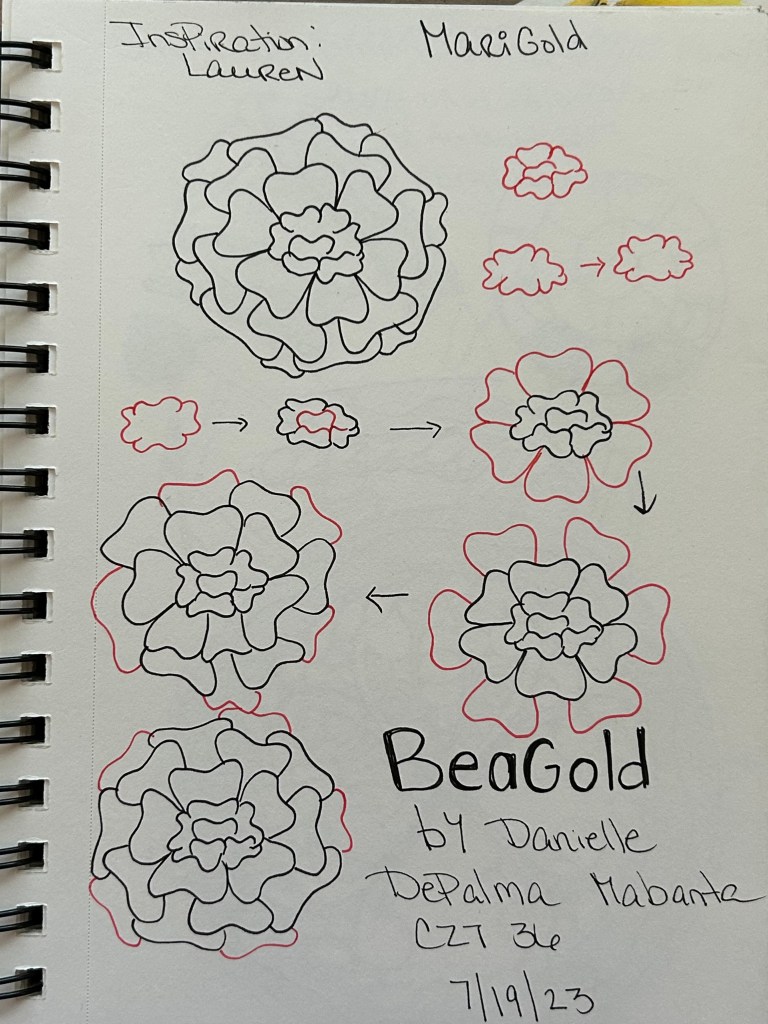 Inspiration:
Lauren
MariGold
BeaGold
by Danielle
DePalma Mabanta
CZT 36
7/19/23